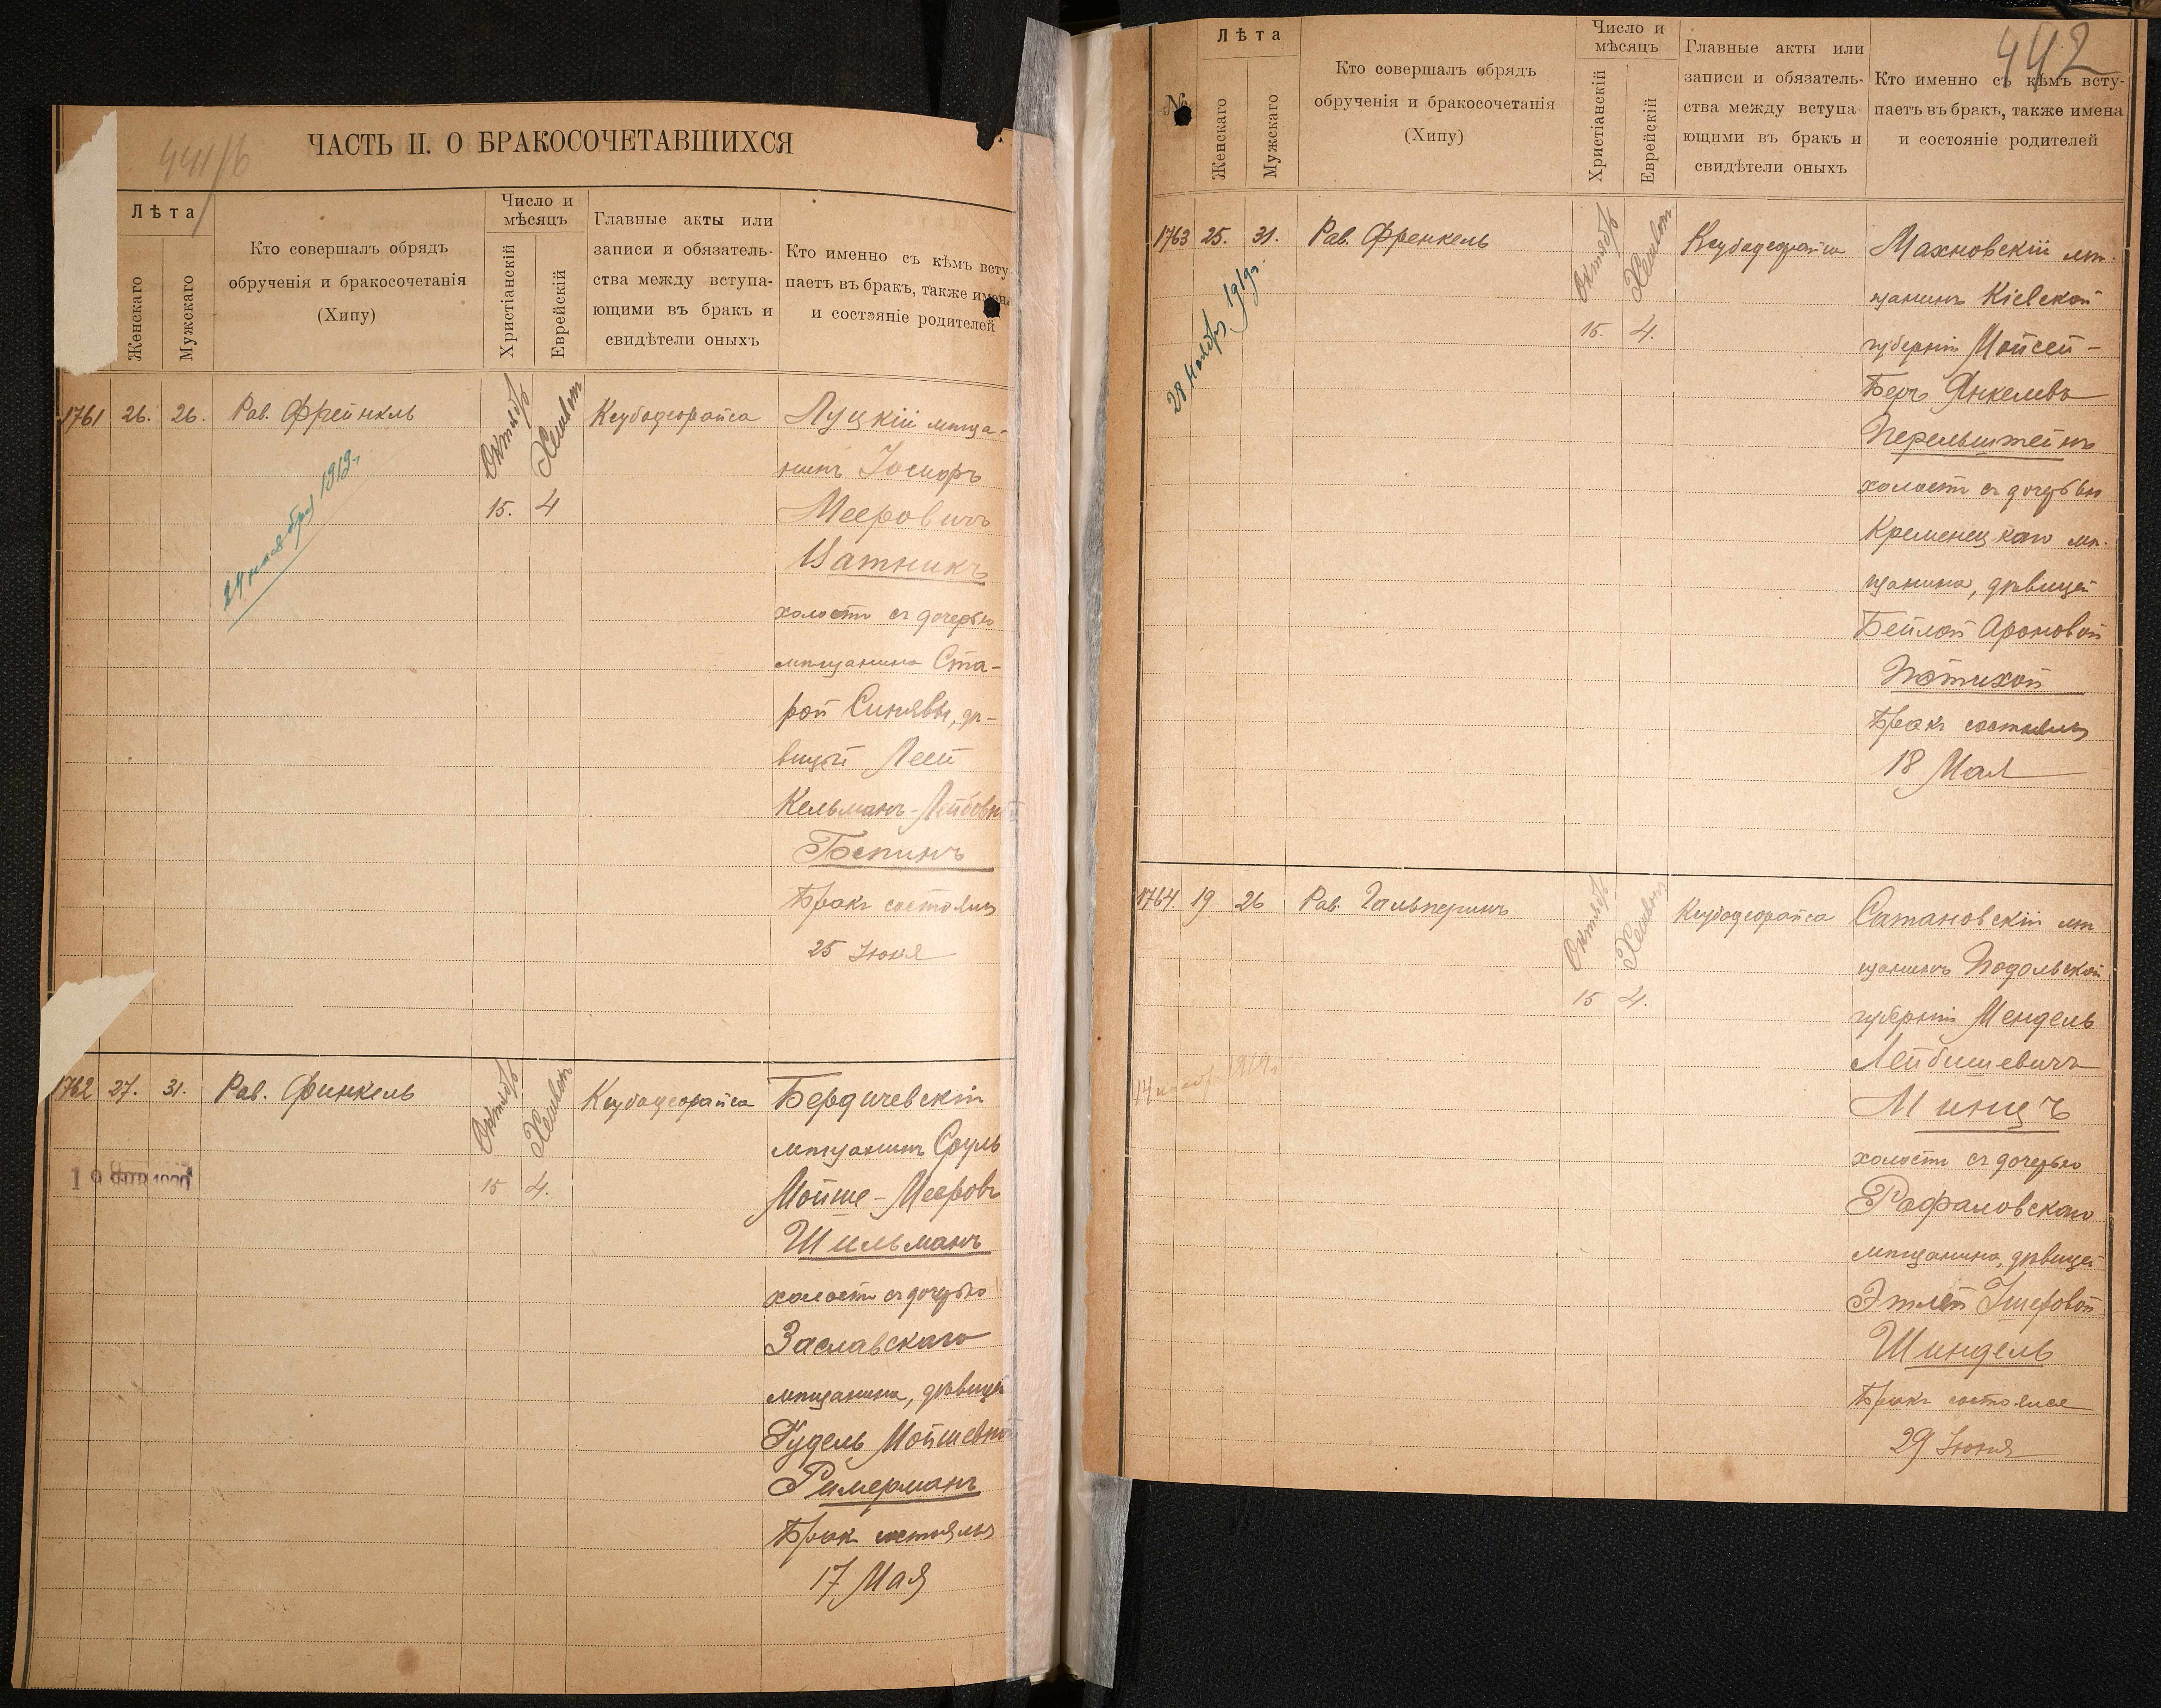 441/б
ЧАСТЬ II. О БРАКОСОЧЕТАВШИХСЯ
Лѣта
Женскаго
Мужскаго
Кто совершалъ обрядъ
обрученія и бракосочетанія
(Хипу)
Число и
мѣсяцъ
Христіанскій
Еврейскій
Главные акты или
записи и обязатель-
ства между вступа-
ющими въ бракъ и
свидѣтели оныхъ
Кто именно съ кѣмъ всту
паетъ въ бракъ, также имена
и состэяніе родителей
1761 26. 26. Рав. Фрейнкль
Октябрь
15.
Хешвон
4
Ксубодеорайса
Луцкій мѣща-
нинъ Іосифъ
Мееровичъ
Ватникъ
холостъ съ дочерью
мѣщанина Ста-
рой Синявы, дѣ-
вицей Леей
Кельманъ-Лейбовной
Госпинъ
Бракъ состоялся
25 Іюня
24 ноября 1919г.
1762 27. 31. Рав. Финкель
Октябрь
15
Хешвон
4.
Ксубодеорайса
Бердичевскій
мѣщанинъ Сруль
Мойше-Мееровъ
Шильманъ
холостъ съ дочерью
Заславскаго
мѣщанина, дѣвицей
Гудель Мойшевной
Римерманъ
Бракъ состоялся
17 Мая
442
№
Лѣта
Женскаго
Мужскаго
Кто совершалъ обрядъ
обрученія и бракосочетанія
(Хипу)
Число и
мѣсяцъ
Христіанскій
Еврейскій
Главные акты или
записи и обязатель-
ства между вступа
ющими въ бракъ и
свидѣтели оныхъ
Кто именно съ кѣмъ всту-
паетъ въ бракъ, также имена
и состояніе родителей
1763 25. 31. Рав. Френкель
Октябрь
15.
Хешвон
4.
Ксубодеорайса
Махновскій мѣ-
щанинъ Кіевской
губерніи Мойсей-
Беръ Янкелевъ
Перельштейнъ
холостъ съ дочерью
Кременецкаго мѣ-
щанина, дѣвицей
Бейлой Ароновой
Потихой
Бракъ состоялся
18 Мая
28 ноября 1919г.
1764 19 26 Рав. Гальперинъ
Октябрь
15
Хешвон
4.
Ксубодеорайса
Сатановскій мѣ
щанинъ Подольской
губерніи Мендель
Лейбишевичъ
Минцъ
холостъ съ дочерью
Рафаловскаго
мѣщанина, дѣвицей
Этлей Ушеровой
Шиндель
Бракъ состоялся
29 Іюня
14 нояб. 1919г.